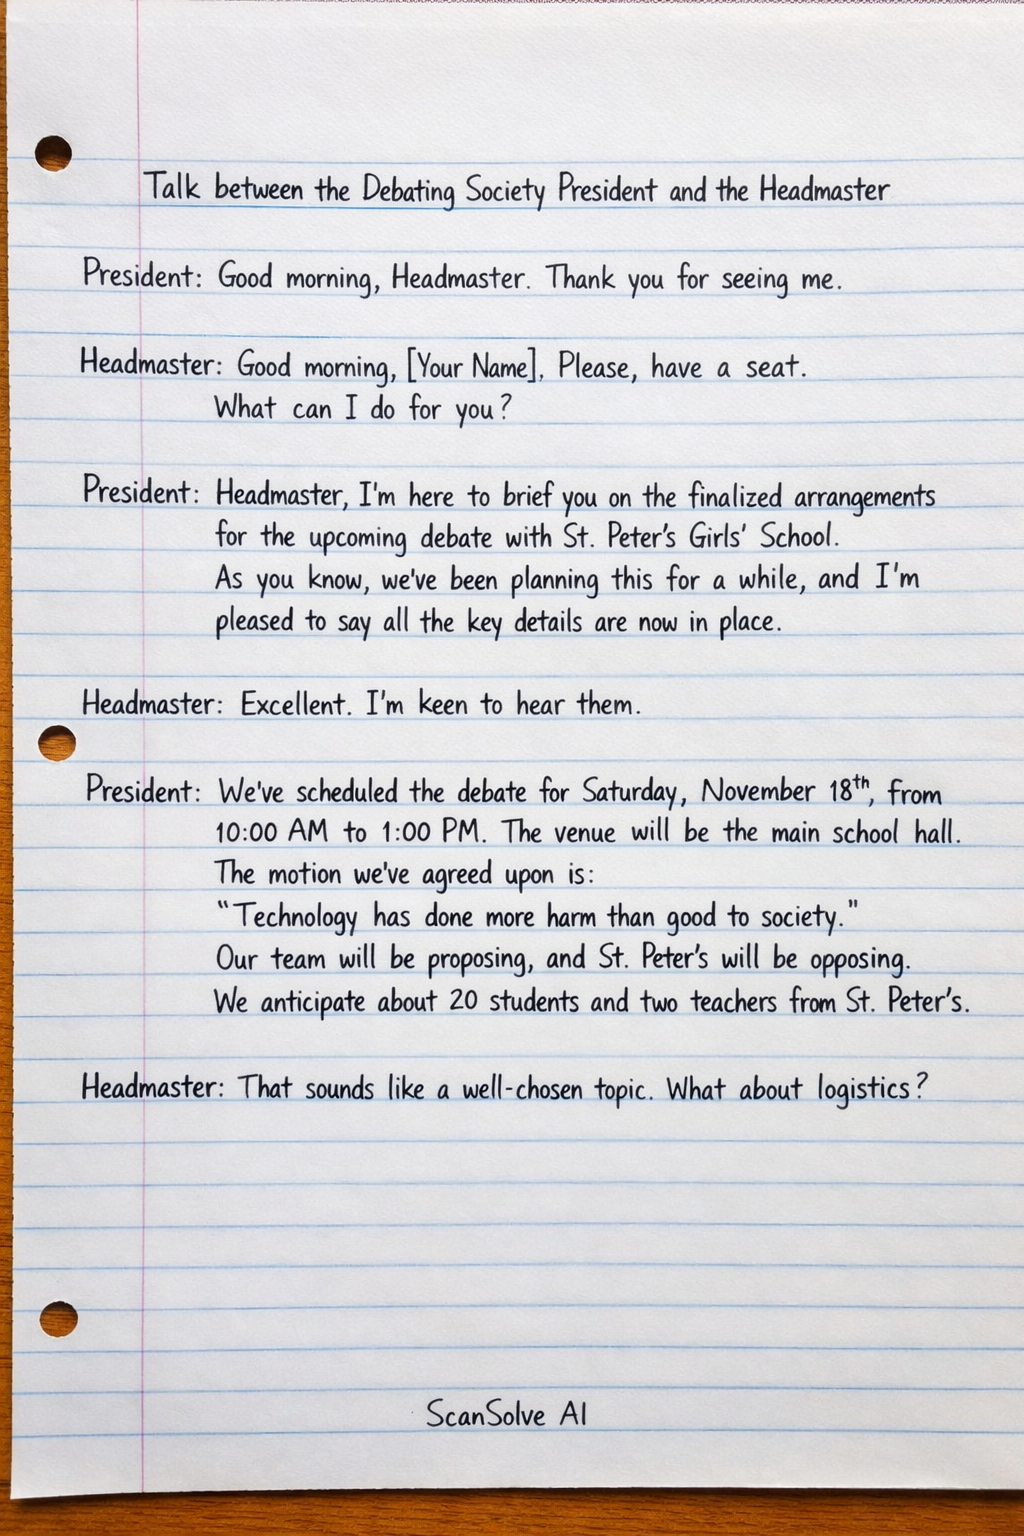 Talk between the Debating Society President and the Headmaster
President: Good morning, Headmaster. Thank you for seeing me.
Headmaster: Good morning, [Your Name]. Please, have a seat.
What can I do for you?
President: Headmaster, I'm here to brief you on the finalized arrangements
for the upcoming debate with St. Peter's Girls' School.
As you know, we've been planning this for a while, and I'm
pleased to say all the key details are now in place.
Headmaster: Excellent. I'm keen to hear them.
President: We've scheduled the debate for Saturday, November 18th, from
10:00 AM to 1:00 PM. The venue will be the main school hall.
The motion we've agreed upon is:
"Technology has done more harm than good to society."
Our team will be proposing, and St. Peter's will be opposing.
We anticipate about 20 students and two teachers from St. Peter's.
Headmaster: That sounds like a well-chosen topic. What about logistics?
ScanSolve AI